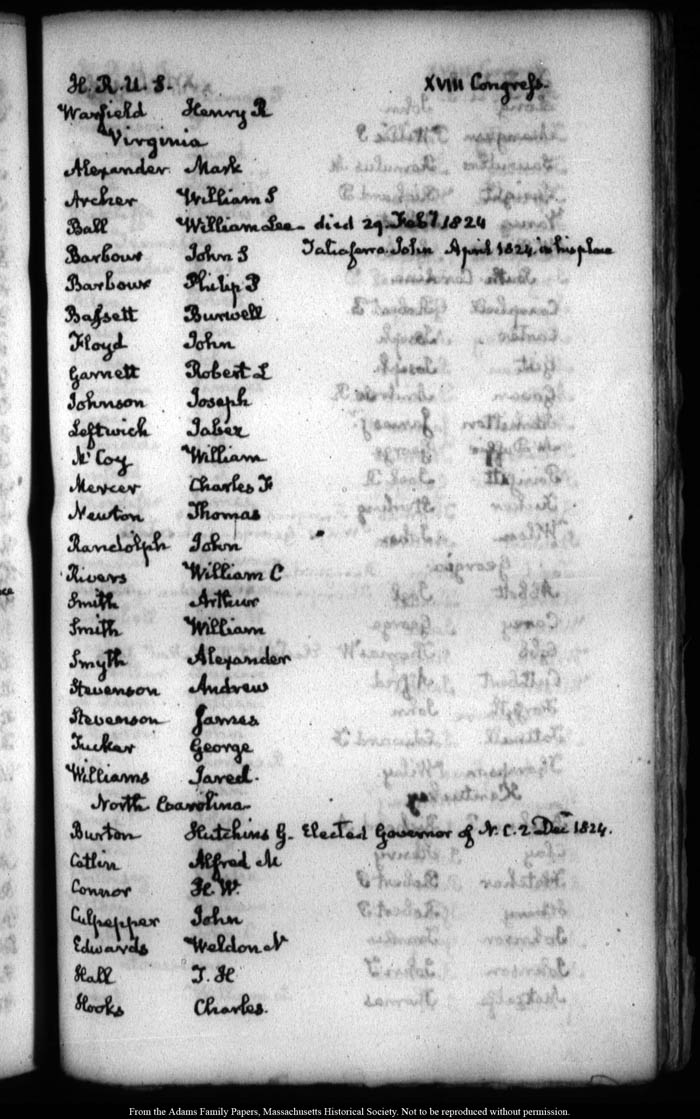 H. R. U. S. XVIII Congress.
Warfield Henry R
Virginia
Alexander Mark
Archer William S
Ball William Lee - died 29. Feby 1824
Barbour John S Taliaferro John April 1824 in his place
Barbour Philip P
Bassett Burwell
Floyd John
Garnett Robert L
Johnson Joseph
Leftwich Jabez
McCoy William
Mercer Charles F
Newton Thomas
Randolph John
Rivers William C
Smith Arthur
Smith William
Smyth Alexander
Stevenson Andrew
Stevenson James
Tucker George
Williams Jared.
North Caarolina
Burton Hutchins G. Elected Governor of N. C. 2 Decr 1824.
Catlin Alfred M
Connor H. W.
Culpepper John
Edwards Weldon N
Hall T. H
Hooks Charles.
From the Adams Family Papers, Massachusetts Historical Society. Not to be reproduced without permission.